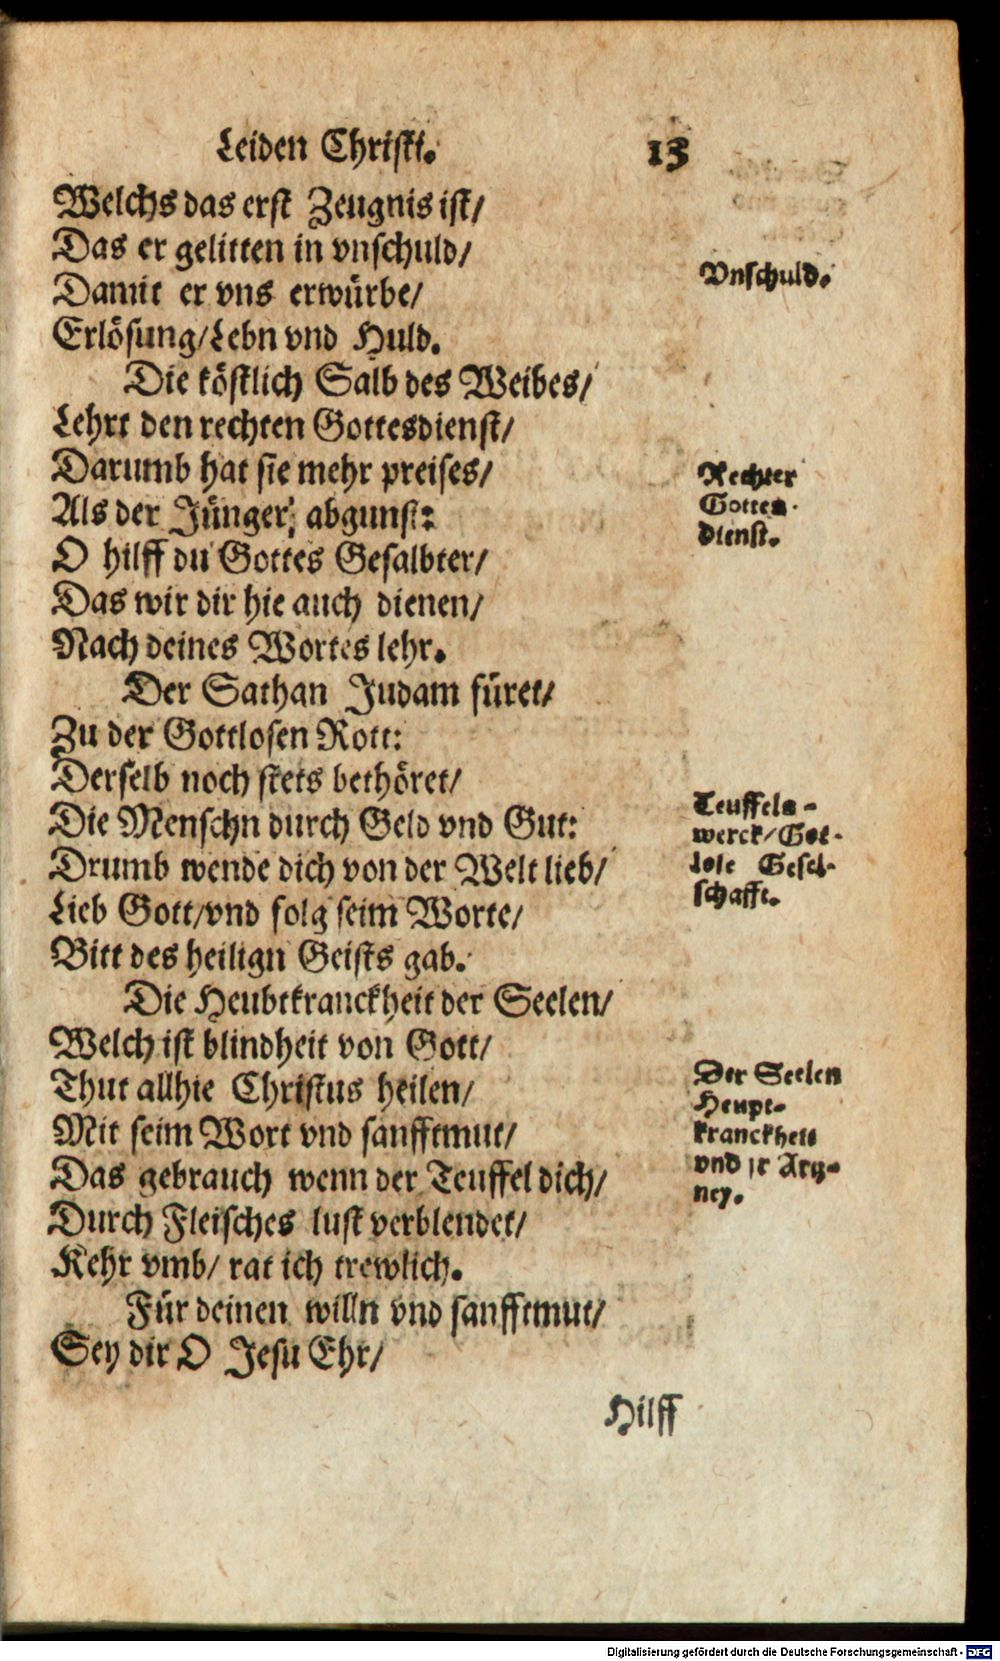 Leiden Christi. 13
Welchs das erst Zeugnis ist/
Das er gelitten in vnschuld/
Vnschuld.
Damit er vns erwürbe/
Erlösung/Lebn vnd Huld.
Die köstlich Salb des Weibes/
Lehrt den rechten Gottesdienst/
Darumb hat sie mehr preises/
Rechter
Gottes-
dienst.
Als der Jünger, abgunst:
O hilff du Gottes Gesalbter/
Das wir dir hie auch dienen/
Nach deines Wortes lehr.
Der Sathan Judam füret/
Zu der Gottlosen Rott:
Derselb noch stets bethöret/
Teuffels-
werck/Got-
lose Gesel-
schafft.
Die Menschn durch Geld vnd Gut:
Drumb wende dich von der Welt lieb/
Lieb Gott/vnd folg seim Worte/
Bitt des heilign Geists gab.
Die Heubtkranckheit der Seelen/
Welch ist blindheit von Gott/
Thut allhie Christus heilen/
Der Seelen
Heupt-
kranckheit
vnd jr Artz-
ney.
Mit seim Wort vnd sanfftmut/
Das gebrauch wenn der Teuffel dich/
Durch Fleisches lust verblendet/
Kehr vmb/ rat ich trewlich.
Für deinen willn vnd sanfftmut/
Sey dir O Jesu Ehr/
Hilff
Digitalisierung gefördert durch die Deutsche Forschungsgemeinschaft - DFG